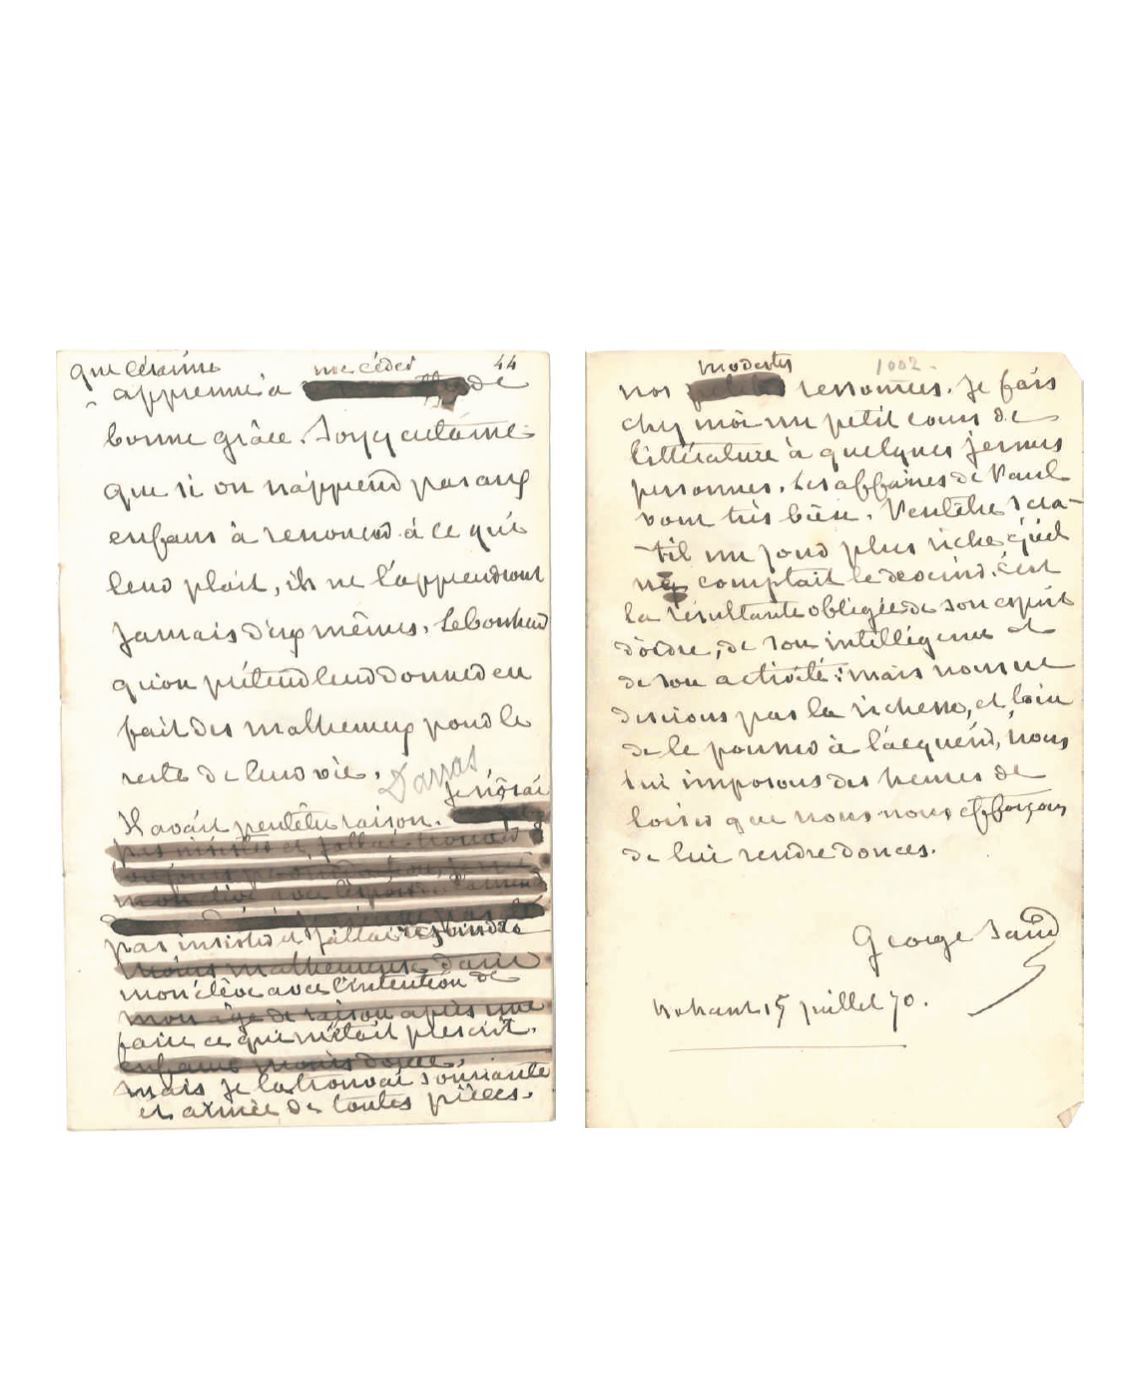 que Césarine me céder 44
apprenne à de
bonne grâce. Soyez certaine
que si on n'apprend pas aux
enfans à renoncer à ce qui
leur plait, ils ne l'apprendront
jamais d'eux mêmes. Le bonheur
qu'on prétend leur donner en
fait des malheureux pour le
reste de leur vie.
Darras
Il avait peutêtre raison. Je n'osai
pas insister et j'allai rejoindre
mon élève avec l'intention de
faire ce qui m'était prescrit.
mais je la trouvai souriante
et armée de toutes pièces.
modestes 1002.
nos ressources. Je fais
chez moi un petit cours de
littérature à quelques jeunes
personnes. Les affaires de Paul
vont très bien. Peutêtre sera-
-til un jour plus riche qu'il
ne comptait le devenir. C'est
la résultante obligée de son esprit
d'ordre, de son intelligence et
de son activité: mais nous ne
desirons pas la richesse, et, loin
de le pousser à l'acquérir, nous
lui imposons des heures de
loisir que nous nous efforçons
de lui rendre douces.
George Sand
Nohant 15 juillet 70.